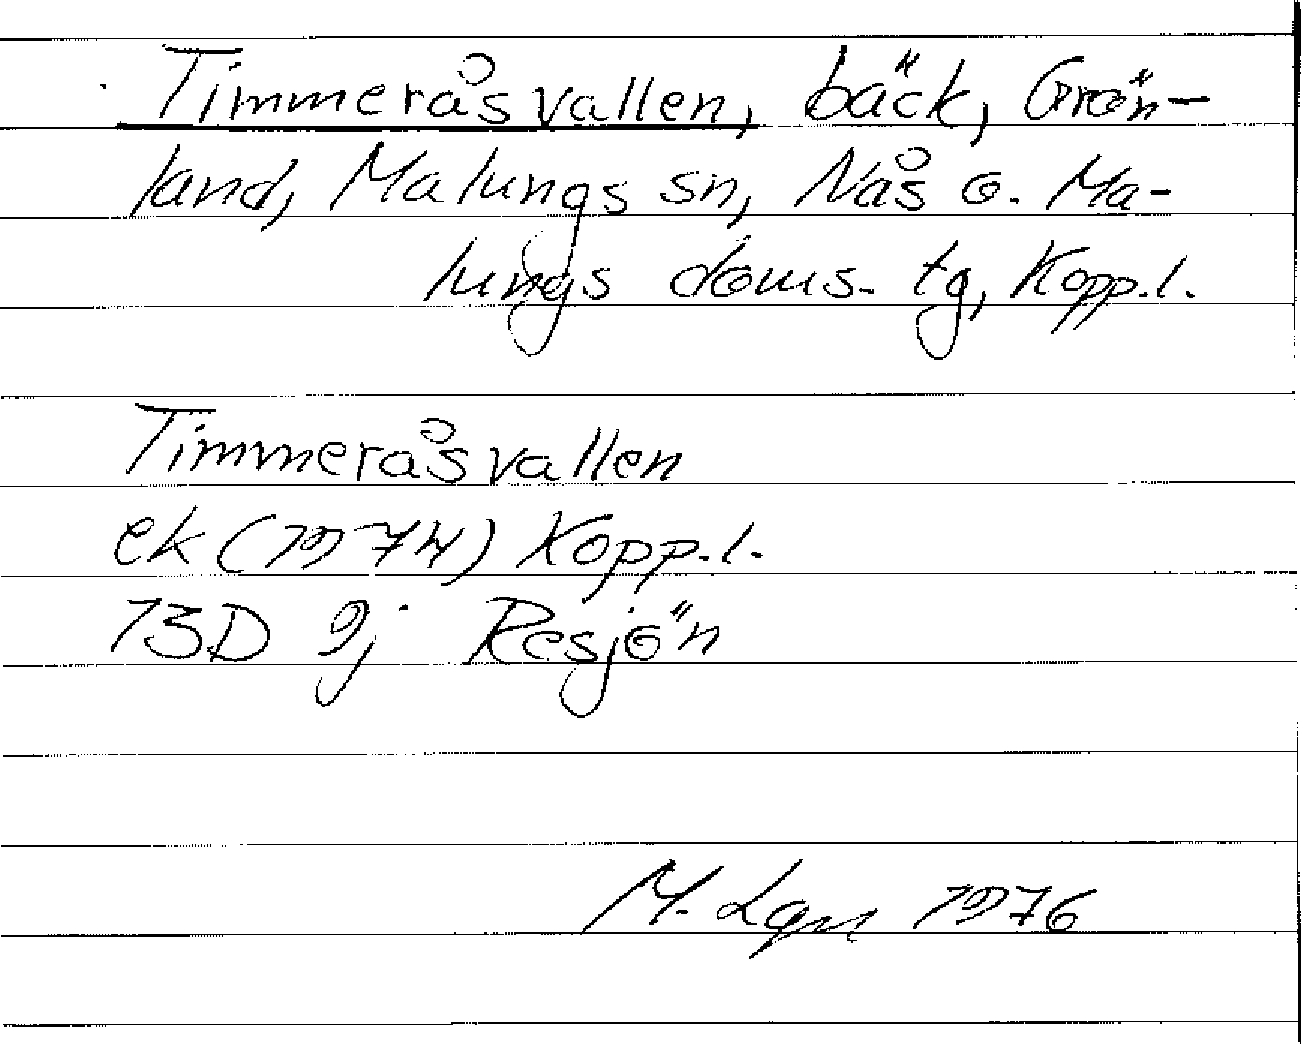 Timmeråsvallen, bäck, Grön-
land, Malungs sn, Nås o. Ma-
lungs doms. tg, Kopp.l.
Timmeråsvallen
ek (1974) Kopp.l.
13D 9j Resjön
M. Lgn 1976